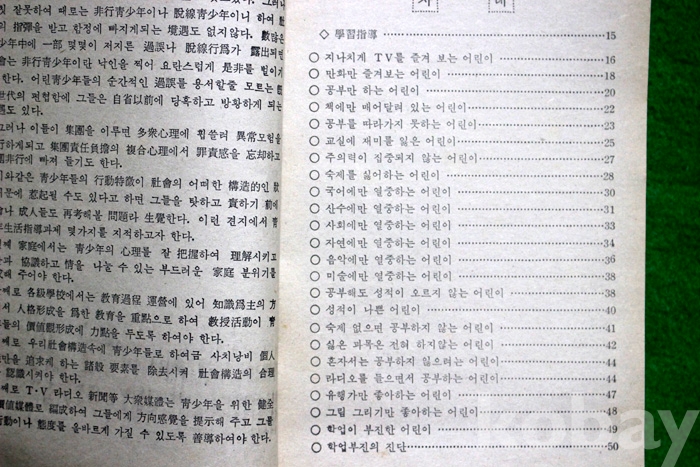 잘못하여 때로는 非行青少年이나 脫線青少年이니 하여
指彈을 받고 함정에 빠지게되는 境遇도 없지않다. 數많은
少年中에 一部 몇몇이 저지른 過誤나 脫線行爲가 露出되면
會는 非行青少年이란 낙인을 찍어 요란스럽게 是非를 벌이기
한다. 어린青少年들의 순간적인 過誤를 용서할줄 모르는
世代의 편협함에 그들은 自省以前에 당혹하고 방황하게 되는
도 있다.
그러나 이들이 集團을 이루면 多衆心理에 휩쓸려 異常모험을
行하게되고 集團責任負擔의 複合心理에서 罪責感을 忘却하고
非行에 빠져 들기도 한다.
와같은 青少年들의 行動特徵이 社會의 어떠한 構造的인
문에 惹起될 수도 있다고 하면 그들을 탓하고 責하기 前에
나 成人들도 再考해볼 問題라 生覺한다. 이런 견지에서 青
年生活指導과제 몇가지를 지적하고자 한다.
째 家庭에서는 青少年의 心理를 잘 把握하여 理解시키고
과 協議하고 情을 나눌 수 있는 부드러운 家庭 분위기를
해 주어야 한다.
째로 各級學校에서는 教育過程 運營에 있어 知識爲主의 方
서 人格形成을 爲한 教育을 重點으로 하여 教授活動이
들의 價値觀形成에 力點을 두도록 하여야 한다.
째로 우리社會構造속에 青少年들로 하여금 사치낭비 個人
만을 追求케 하는 諸般 要素를 除去시켜 社會構造의 合理
認識시켜야 한다.
째로 T·V 라디오 新聞等 大衆媒體는 青少年을 위한 健全
價値媒體로 編成하여 그들에게 方向感覺을 提示해 주고 그들
行動이나 態度를 올바르게 가질 수 있도록 善導하여야 한다.
차 례
◇ 學習指導 15
○ 지나치게 TV를 즐겨 보는 어린이 16
○ 만화만 즐겨보는 어린이 18
○ 공부만 하는 어린이 20
○ 책에만 매어달려 있는 어린이 22
○ 공부를 따라가지 못하는 어린이 23
○ 교실에 재미를 잃은 어린이 25
○ 주의력이 집중되지 않는 어린이 27
○ 숙제를 싫어하는 어린이 28
○ 국어에만 열중하는 어린이 30
○ 산수에만 열중하는 어린이 31
○ 사회에만 열중하는 어린이 33
○ 자연에만 열중하는 어린이 34
○ 음악에만 열중하는 어린이 36
○ 미술에만 열중하는 어린이 38
○ 공부해도 성적이 오르지 않는 어린이 38
○ 성적이 나쁜 어린이 40
○ 숙제 없으면 공부하지 않는 어린이 41
○ 싫은 과목은 전혀 하지않는 어린이 42
○ 혼자서는 공부하지 않으려는 어린이 43
○ 라디오를 들으면서 공부하는 어린이 44
○ 유행가만 좋아하는 어린이 44
○ 그림 그리기만 좋아하는 어린이 48
○ 학업이 부진한 어린이 49
○ 학업부진의 진단 50
kobay